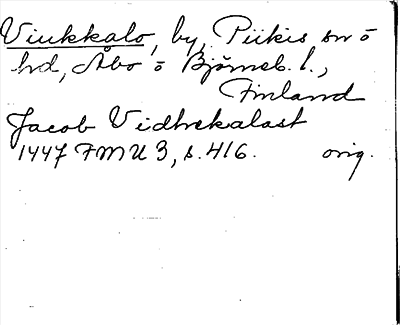 Viukkalo, by, Piikis sn o
hd, Åbo o Björneb. l.,
Finland
Jacob Vidhrekalast
1447 FMU 3, s. 416. orig.